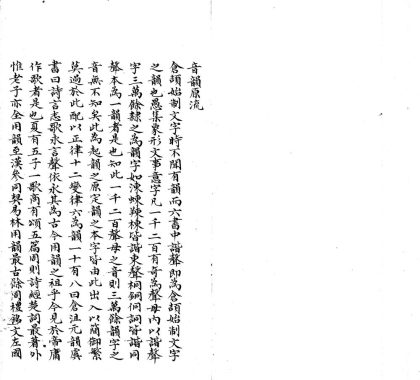 音韻原流
倉頡始制文字時不聞有韻而六書中諧聲即為倉頡始制文字
之韻也愚集象形文事意字凡一千二百有奇為聲母內以諧聲
字三萬餘隸之為韻字如涷蝀鶇棟皆諧東聲桐銅峒詷皆諧同
聲本為一韻者是也知此一千二百聲母之音則三萬餘韻字之
音無不知矣此為起韻之原定韻之本字皆由此出入以簡御繁
莫過於此配以正律十二變律六為韻一十有八曰倉沮元韻虞
書曰詩言志歌永言聲依永其為古今用韻之祖乎今見於帝庸
作歌者是也夏有五子一歌商有頌五篇周則詩經楚詞最著外
惟老子亦全用韻至漢參同契易林用韻最古餘周禮銘文左國